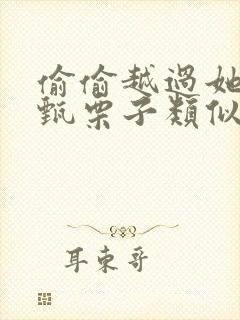 偷偷越過她
甄栗子類似
耳東哥